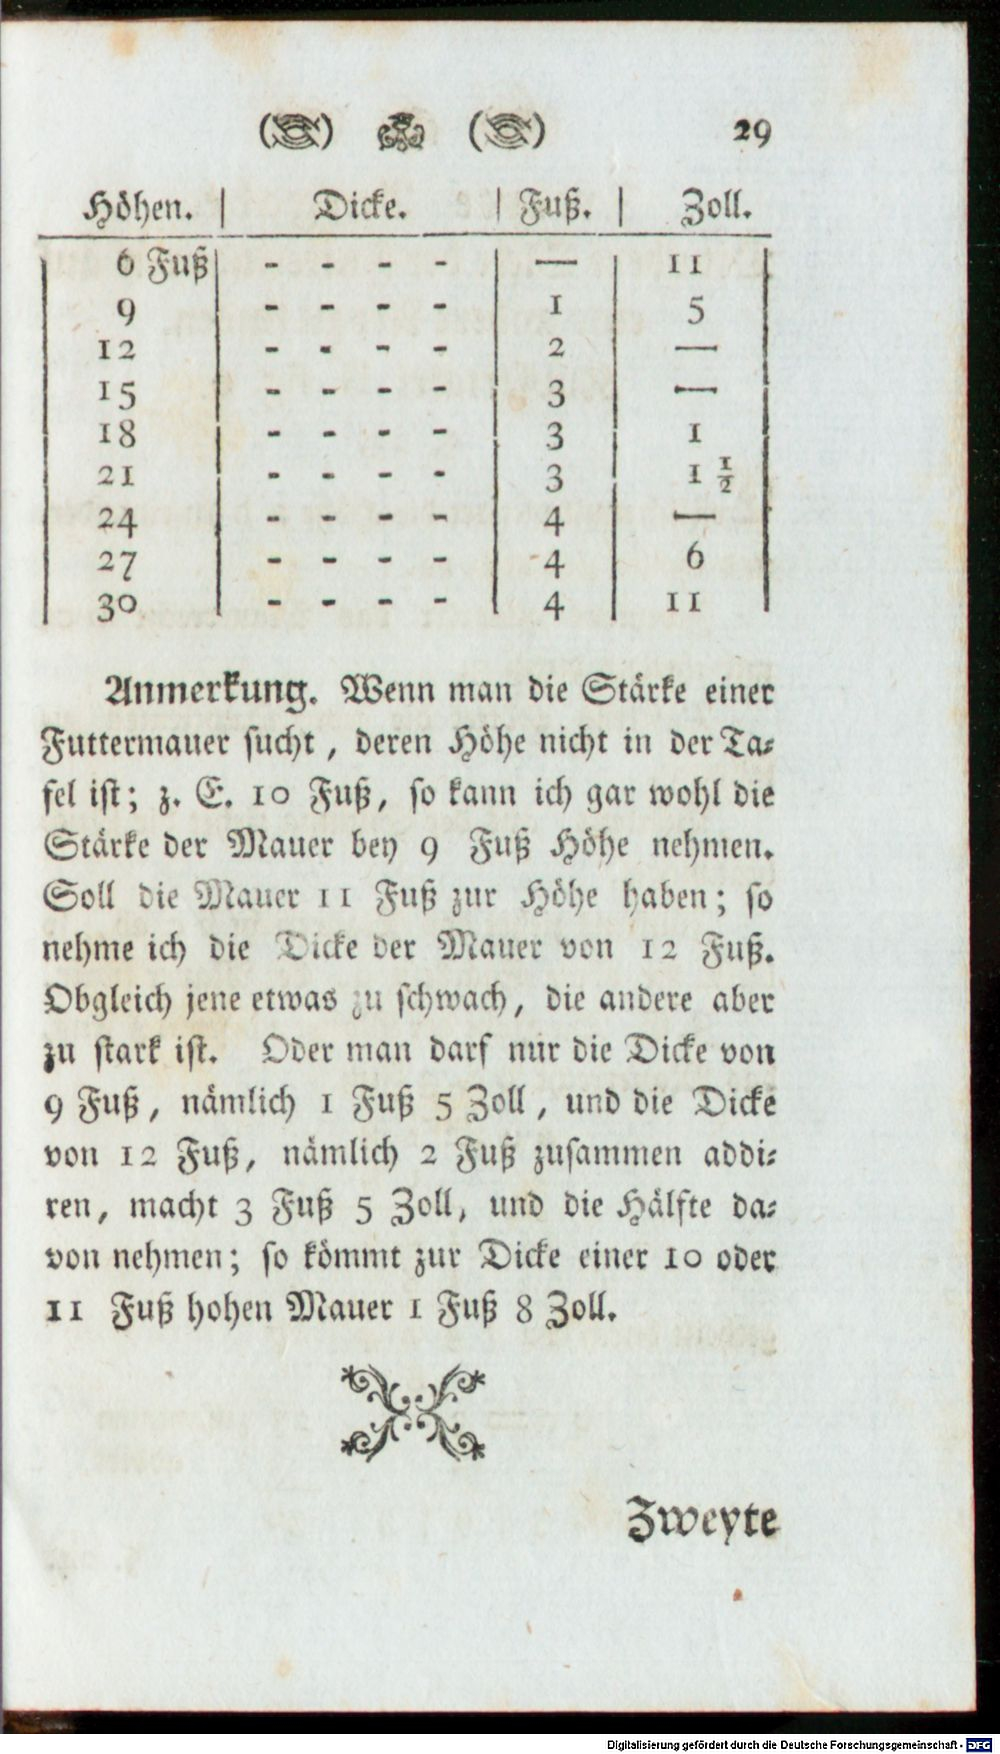 29
Höhen. | Dicke. | Fuß. | Zoll.
6 Fuß - - - - — 11
9 - - - - 1 5
12 - - - - 2 —
15 - - - - 3 —
18 - - - - 3 1
21 - - - - 3 1 1/2
24 - - - - 4 —
27 - - - - 4 6
30 - - - - 4 11
Anmerkung. Wenn man die Stärke einer
Futtermauer sucht, deren Höhe nicht in der Ta-
fel ist; z. E. 10 Fuß, so kann ich gar wohl die
Stärke der Mauer bey 9 Fuß Höhe nehmen.
Soll die Mauer 11 Fuß zur Höhe haben; so
nehme ich die Dicke der Mauer von 12 Fuß.
Obgleich jene etwas zu schwach, die andere aber
zu stark ist. Oder man darf nur die Dicke von
9 Fuß, nämlich 1 Fuß 5 Zoll, und die Dicke
von 12 Fuß, nämlich 2 Fuß zusammen addi-
ren, macht 3 Fuß 5 Zoll, und die Hälfte da-
von nehmen; so kömmt zur Dicke einer 10 oder
11 Fuß hohen Mauer 1 Fuß 8 Zoll.
Zweyte
Digitalisierung gefördert durch die Deutsche Forschungsgemeinschaft - DFG